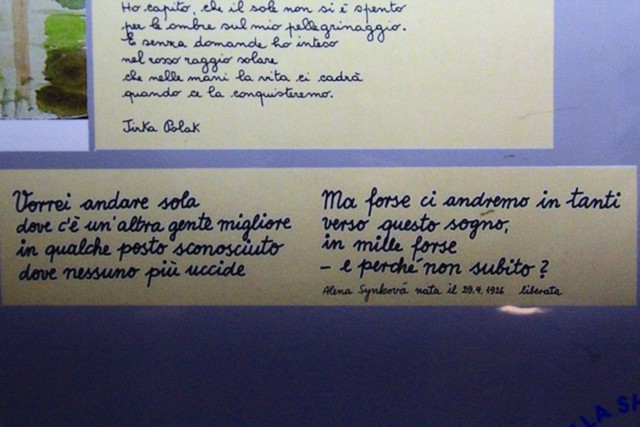 Ho capito, che il sole non si è spento
per le ombre sul mio pellegrinaggio.
E senza domande ho inteso
nel rosso raggio solare
che nelle mani la vita ci cadrà
quando ce la conquisteremo.
Jirka Polak
Vorrei andare sola
dove c'è un'altra gente migliore
in qualche posto sconosciuto
dove nessuno più uccide
Ma forse ci andremo in tanti
verso questo sogno,
in mille forse
– e perché non subito?
Alena Synková nata il 29.4.1926 liberata
ALA SA